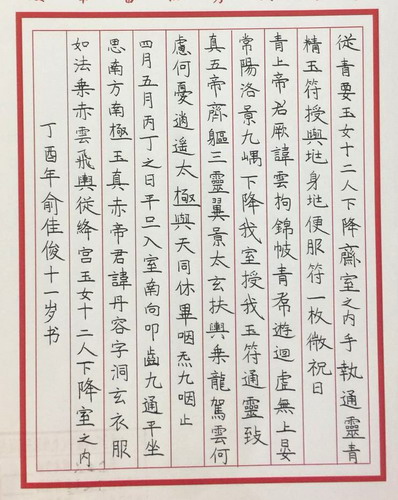 從青要玉女十二人下降齋室之内手執通靈青
精玉符授與地身地便服符一枚微祝日
青上帝君厥諱雲拘錦帔青帬遊迴虛無上晏
常陽洛景九嵎下降我室授我玉符通靈致
真五帝齊軀三靈翼景太玄扶輿乗龍駕雲何
慮何憂逍遥太極與天同休畢咽炁九咽止
四月五月丙丁之日平旦入室南向叩齒九通平坐
思南方南極玉真赤帝君諱丹容字洞玄衣服
如法乗赤雲飛輿從絳宫玉女十二人下降室之内
丁酉年俞佳俊十一岁书